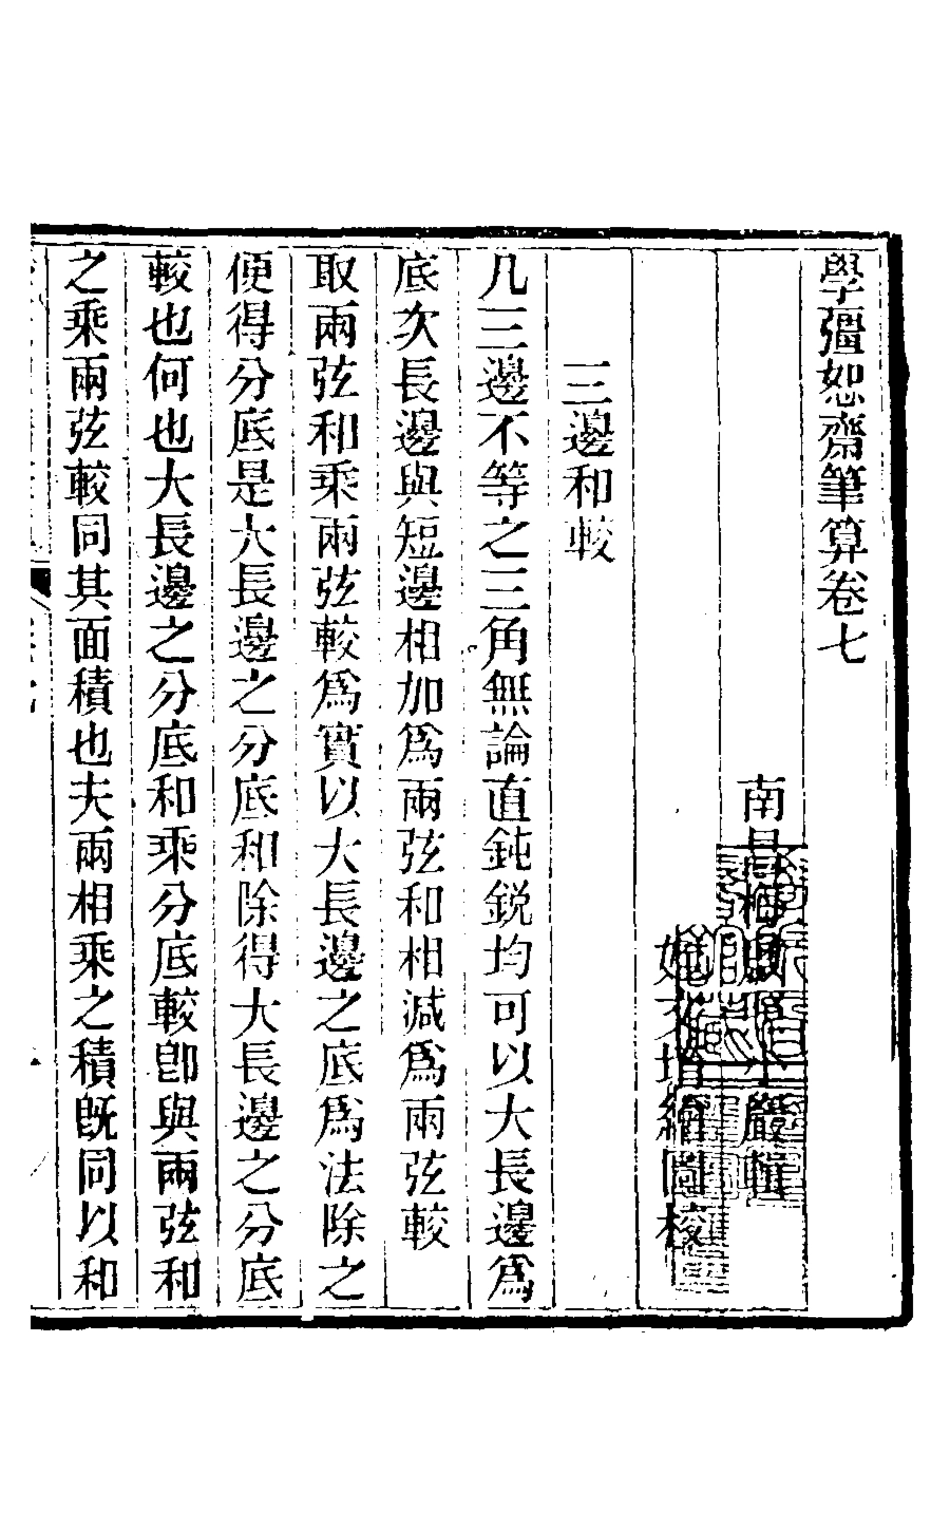 學彊恕齋筆算卷七
南昌梅啟照小巖輯
婉文增繪圖校
三邊和較
凡三邊不等之三角無論直鈍銳均可以大長邊爲
底次長邊與短邊相加爲兩弦和相減爲兩弦較
取兩弦和乘兩弦較爲實以大長邊之底爲法除之
便得分底是大長邊之分底和除得大長邊之分底
較也何也大長邊之分底和乘分底較卽與兩弦和
之乘兩弦較同其面積也夫兩相乘之積旣同以和